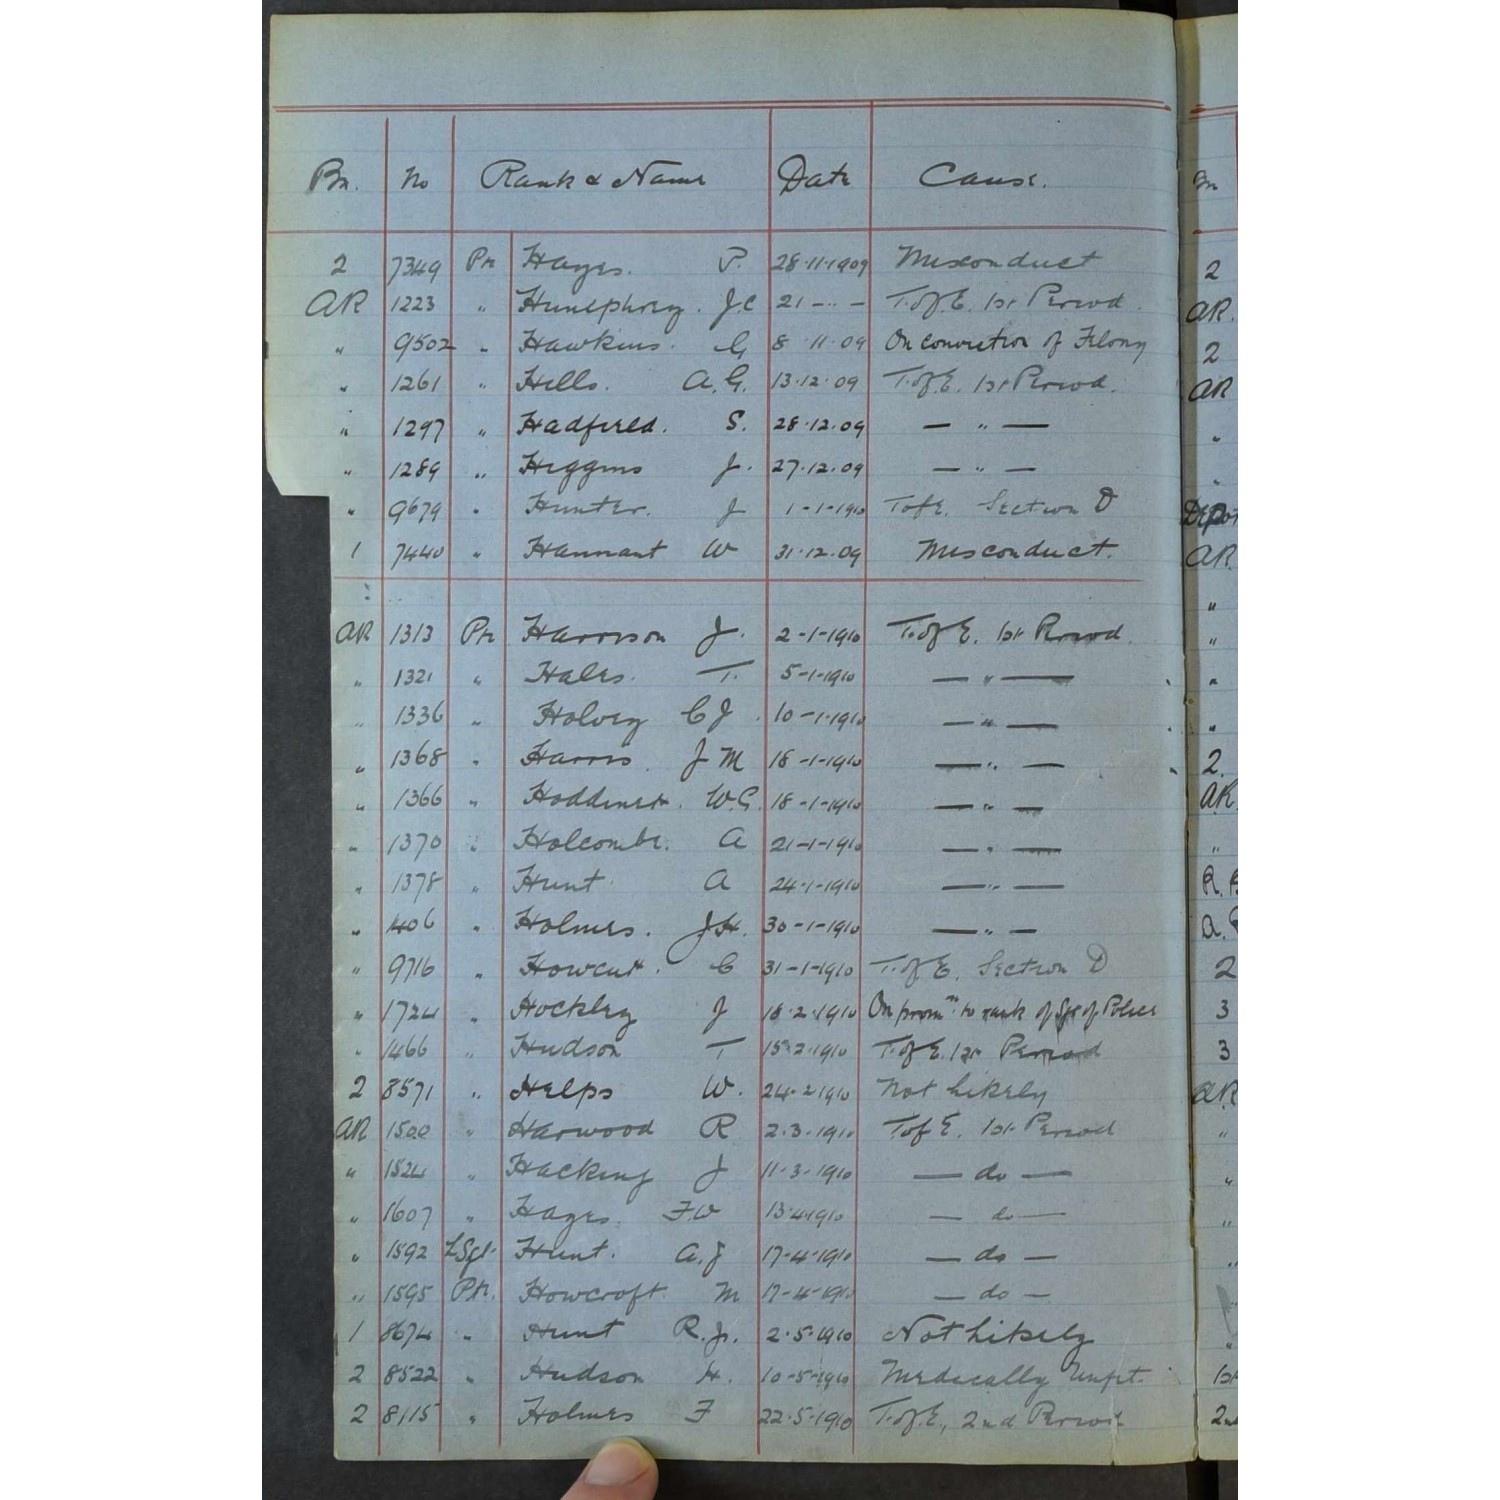 Bn. No Rank & Name Date Cause. Bn
2 7349 Pte Hayes. P. 28.11.1909 Misconduct 2
AR 1223 " Humphrey. J.C 21 — " — T. of E. 1st Period. AR.
" 9502 " Hawkins. G 8.11.09 On conviction of Felony 2
" 1261 " Hills. A.G. 13.12.09 T. of E. 1st Period. AR
" 1297 " Hadfield. S. 28.12.09 — " — "
" 1289 " Higgins J. 27.12.09 — " — "
" 9679 " Hunter. J 1-1-1910 T of E. Section D Depot
1 7440 " Hannant W 31.12.09 Misconduct. AR.
"
AR 1313 Pte Harrison J. 2-1-1910 T. of E. 1st Period. "
" 1321 " Hales. T. 5-1-1910 — " — "
" 1336 " Holvey C J. 10-1-1910 — " — "
" 1368 " Harris. J M 18-1-1910 — " — 2.
" 1366 " Hoddinett. W.G. 18-1-1910 — " — AR.
" 1370 " Holcombe. A 21-1-1910 — " — "
" 1378 " Hunt. A 24-1-1910 — " —
" 1406 " Holmes. J.H. 30-1-1910 — " —
" 9716 " Howcutt. C 31-1-1910 T. of E. Section D 2
" 1724 " Hockley J 18.2.1910 On promn to rank of Sgt of Police 3
" 1466 " Hudson T 15.2.1910 T. of E. 1st Period 3
2 8571 " Helps W. 24-2-1910 Not likely AR
AR 1500 " Harwood R 2.3.1910 T of E. 1st Period "
" 1524 " Hacking J 11-3-1910 — do — "
" 1607 " Hayes. F W 13.4.1910 — do — "
" 1592 L Sgt. Hunt. A.J 17-4-1910 — do — "
" 1595 Pte. Howcroft M 17-4-1910 — do —
1 8674 " Hunt R.J. 2.5.1910 Not likely "
2 8522 " Hudson H. 10-5-1910 Medically Unfit. 1st
2 8115 " Holmes F 22.5.1910 T. of E., 2nd Period 2nd